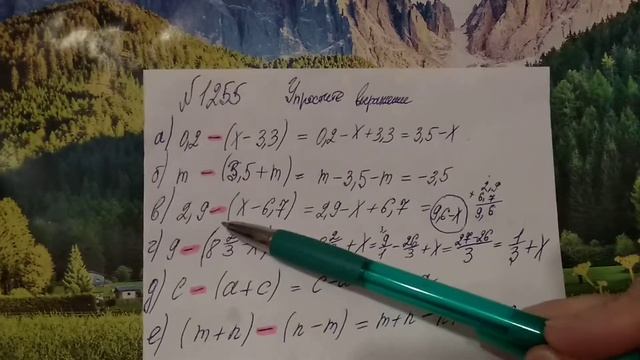 №1255 Упростите выражение
а) 0,2 - (x - 3,3) = 0,2 - x + 3,3 = 3,5 - x
б) m - (3,5 + m) = m - 3,5 - m = -3,5
в) 2,9 - (x - 6,7) = 2,9 - x + 6,7 = 9,6 - x + 2,9 6,7 9,6
г) 9 - (8 2/3 - x) 2/3 + x = 9/1 - 26/3 + x = 27-26/3 = 1/3 + x
д) c - (a + c) = c - a
е) (m + n) - (n - m) = m + n - n